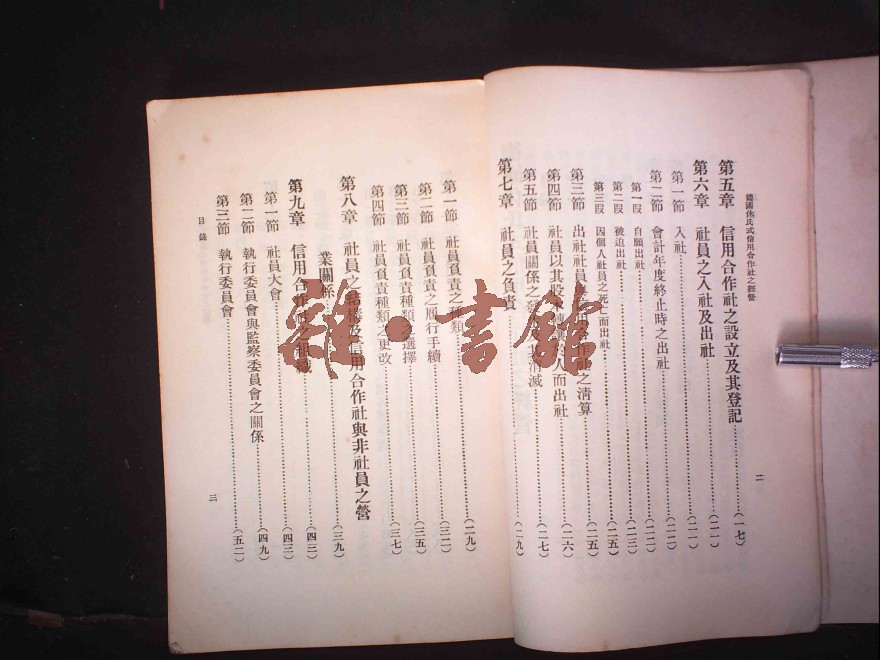 德國佚氏式信用合作社之經營
第五章 信用合作社之設立及其登記……(一七)
第六章 社員之入社及出社……(二一)
第一節 入社……(二一)
第二節 會計年度終止時之出社……(二二)
第一段 自願出社……(二三)
第二段 被迫出社……(二五)
第三段 因個人社員之死亡而出社……(二五)
第三節 出社社員與信用合作社之清算……(二六)
第四節 社員以其股本轉讓 人而出社
第五節 社員關係之 消滅……(二七)
第七章 社員之負責……(二九)
二
第一節 社員負責之種類……(二九)
第二節 社員負責之履行手續……(三二)
第三節 社員負責種類之選擇……(三五)
第四節 社員負責種類之更改……(三七)
第八章 社員之結構及信用合作社與非社員之營
業關係……(三九)
第九章 信用合作社之組織……(四三)
第一節 社員大會……(四三)
第二節 執行委員會與監察委員會之關係……(四九)
第三節 執行委員會……(五二)
目錄
三
雜·書館